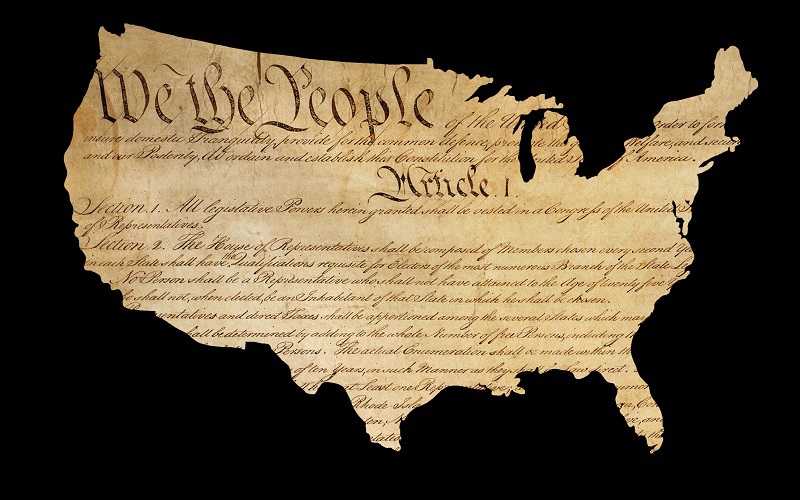 We the People of the Un
order to for
insure domestic Tranquility, provide for the common defence, promote the welfare, and secure
and our Posterity, do ordain and establish this Constitution for the United S of America.
Article. I
Section. 1. All legislative Powers herein granted shall be vested in a Congress of the United S
of Representatives.
Section. 2. The House of Representatives shall be composed of Members chosen every second Ye
in each State shall have the Qualifications requisite for Electors of the most numerous Branch of the State
No Person shall be a Representative who shall not have attained to the Age of twenty five
shall not, when elected, be an Inhabitant of that State in which he shall be chosen.
and direct Taxes shall be apportioned among the several States which may
shall be determined by adding to the whole Number of free Persons, including
Persons. The actual Enumeration shall be made within
of ten Years, in such Manner as they shall by Law direct.
at Least one
Rhode